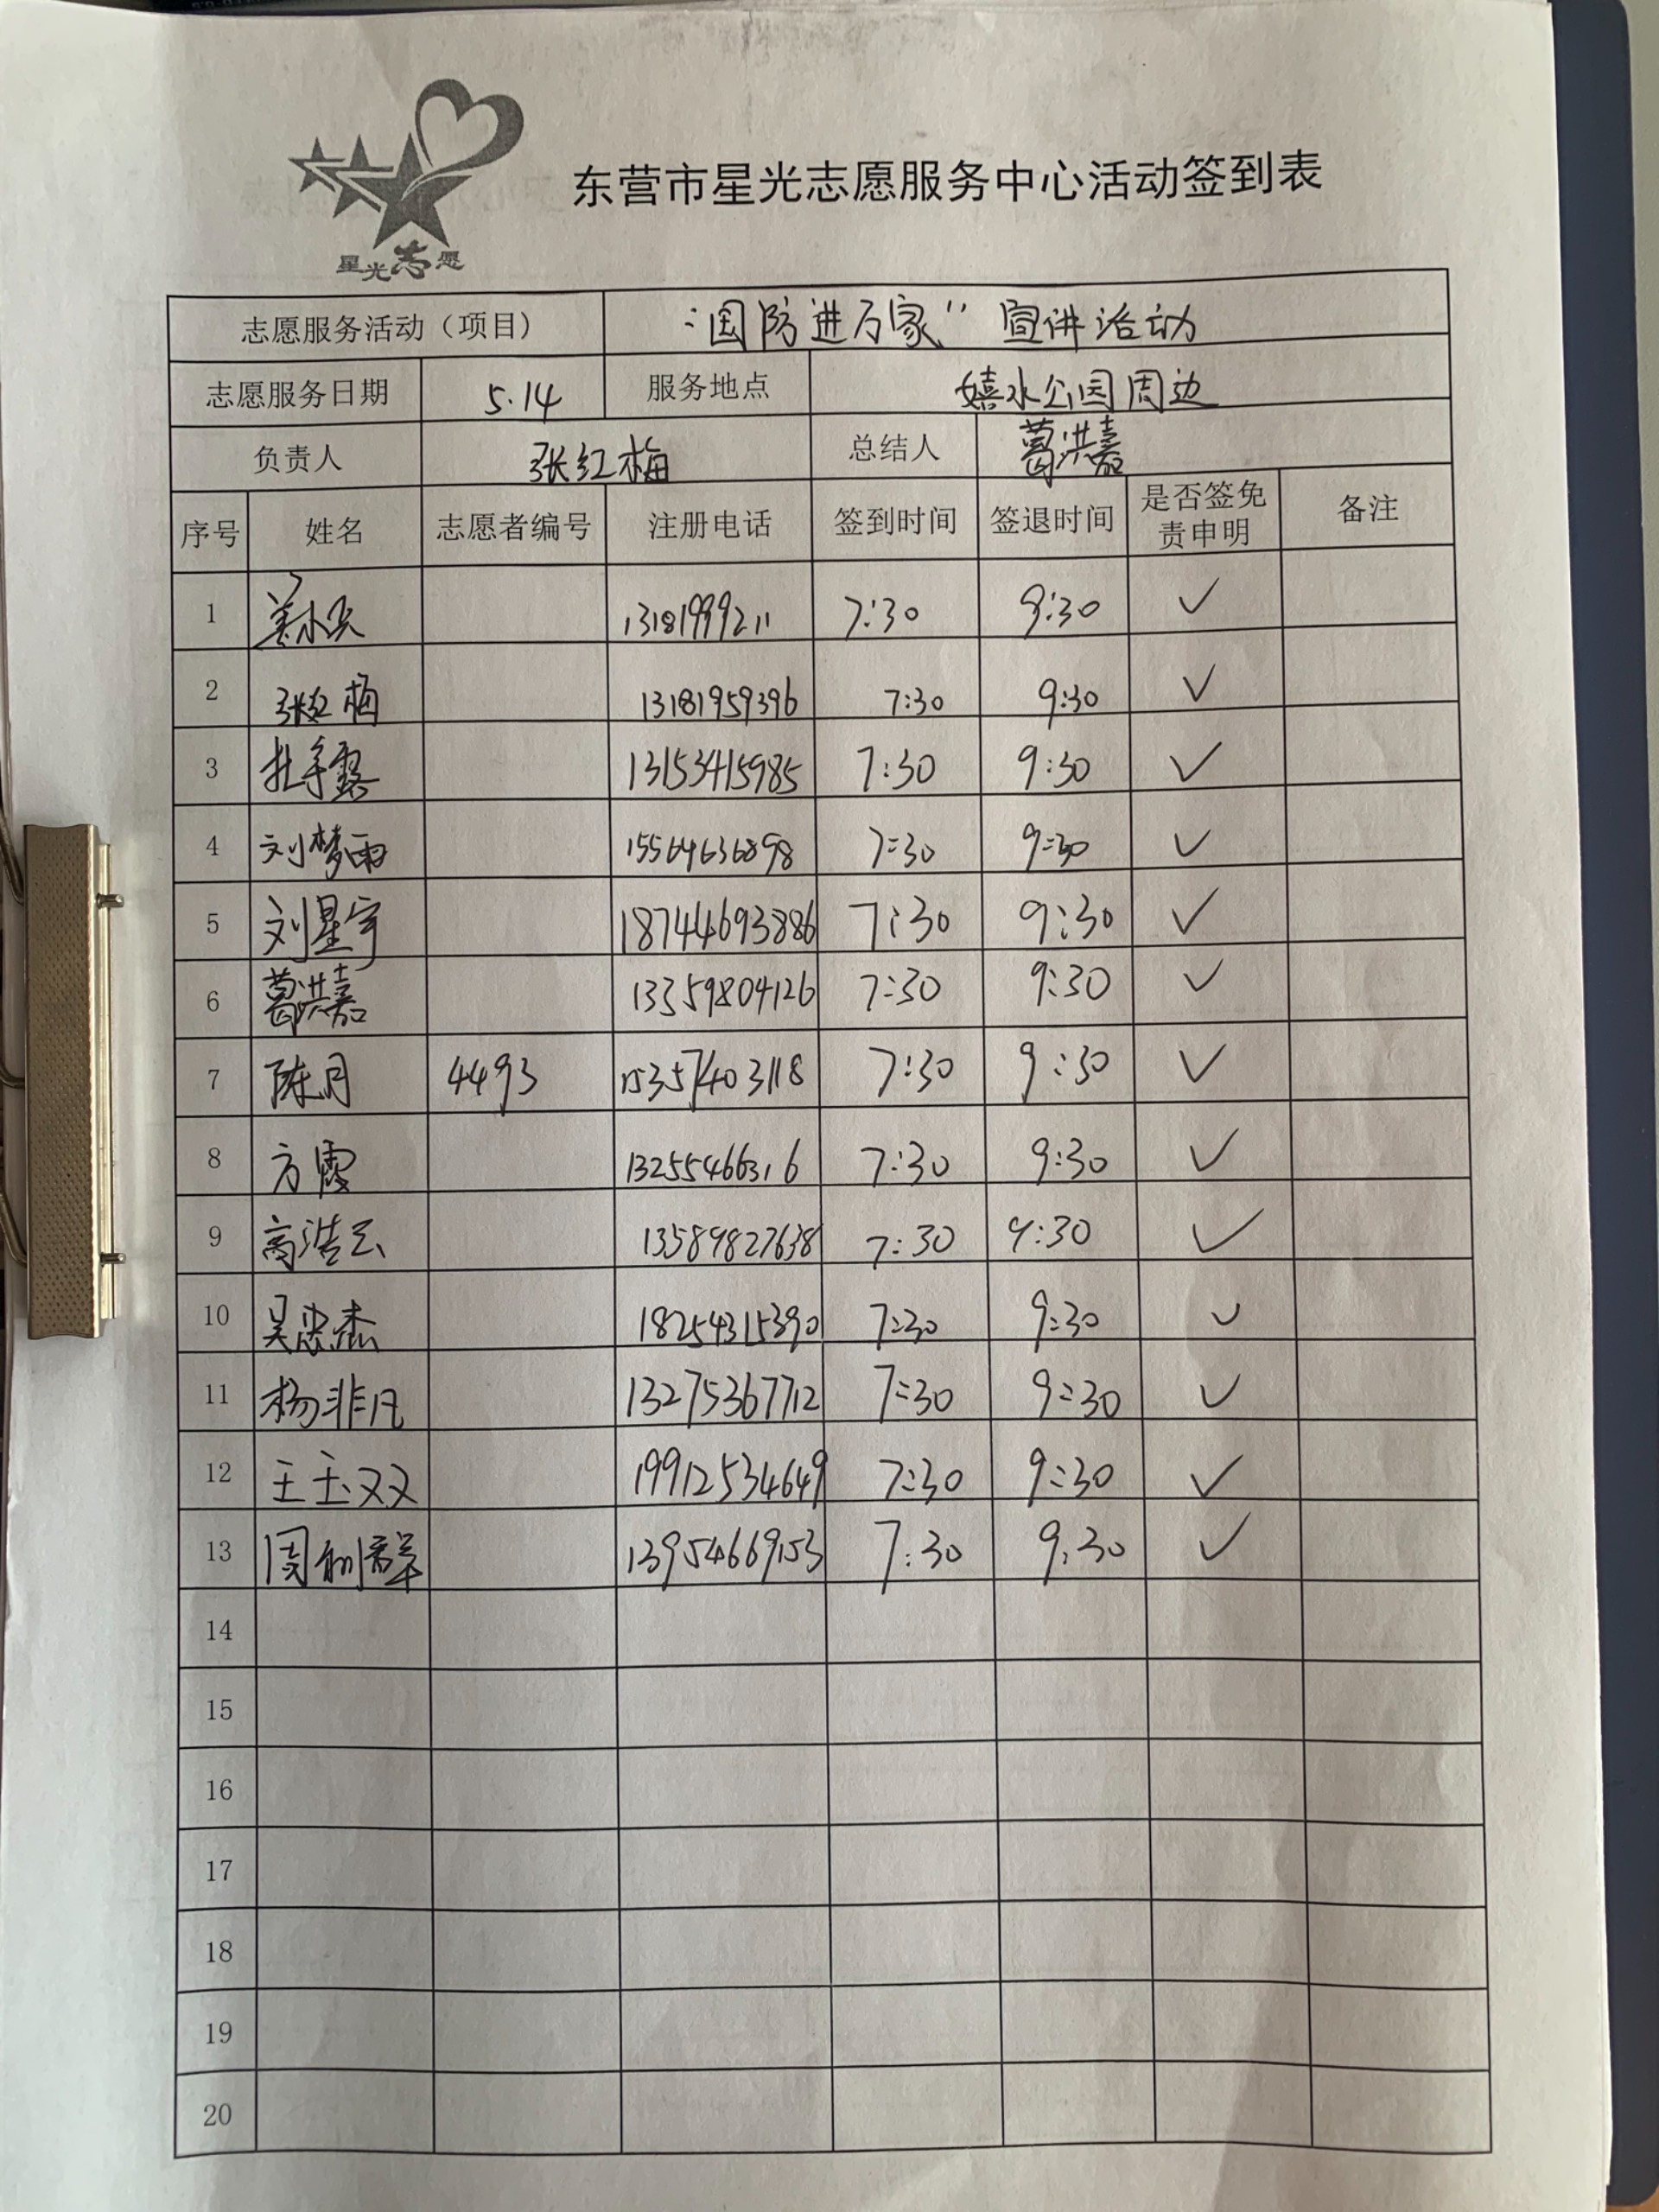 星光志愿
东营市星光志愿服务中心活动签到表
志愿服务活动（项目） “国防进万家” 宣讲活动
志愿服务日期 5.14 服务地点 嬉水公园周边
负责人 张红梅 总结人 葛洪嘉
序号 姓名 志愿者编号 注册电话 签到时间 签退时间 是否签免责申明 备注
1 13181999211 7:30 9:30 ✓
2 张红梅 13181959396 7:30 9:30 ✓
3 13153415985 7:30 9:30 ✓
4 刘梦雨 15564636898 7:30 9:30 ✓
5 刘星宇 18744693886 7:30 9:30 ✓
6 葛洪嘉 13359804126 7:30 9:30 ✓
7 陈月 4493 15357403118 7:30 9:30 ✓
8 方霞 13255466316 7:30 9:30 ✓
9 高浩云 13589827638 7:30 9:30 ✓
10 吴忠杰 18254315390 7:30 9:30 ✓
11 杨非凡 13275367712 7:30 9:30 ✓
12 王玉双 19912534649 7:30 9:30 ✓
13 周利群 13954669153 7:30 9:30 ✓
14
15
16
17
18
19
20